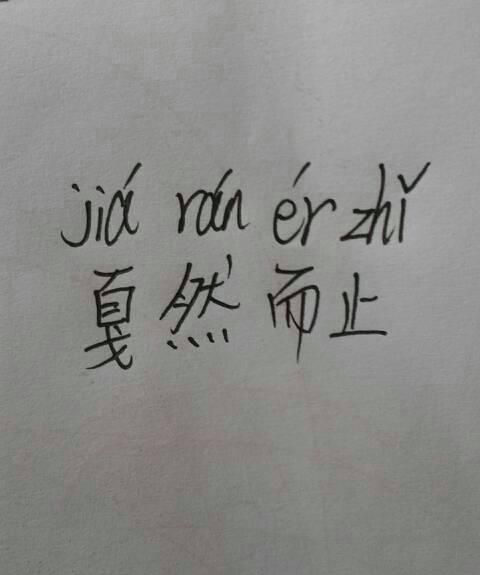 jiá rán ér zhǐ
戛然而止